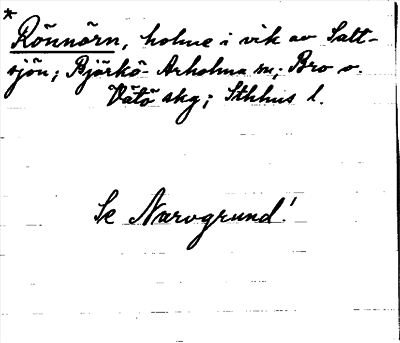 *
Rönnörn, holme i vik av Salt-
sjön; Björkö-Arholma sn; Bro o.
Vätö skg; Sthlms l.
Se Narvgrund!